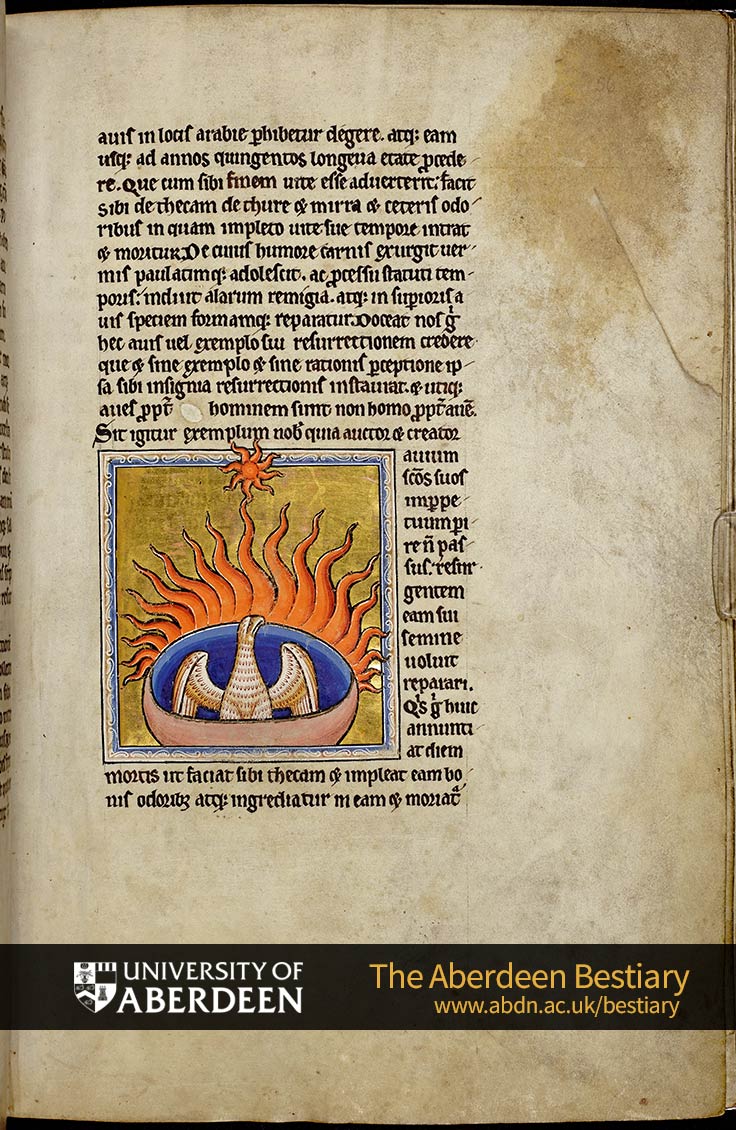 auis in locis arabie ꝑhibetur degere. atq: eam
usq: ad annos quingentos longeua etate ꝓcede
re. Que cum sibi finem uite esse aduerterit: facit
sibi de thecam de thure & mirra & ceteris odo
ribus in quam impleto uite sue tempore intrat
& moritur. De cuius humore carnis exurgit uer
mis paulatimq: adolescit. ac ꝓcessu statuti tem
poris: induit alarum remigia. atq: in supioris a
uis speciem formamq: reparatur. Doceat nos g̃
hec auis uel exemplo sui resurrectionem credere
que & sine exemplo & sine rationis ꝑceptione ip
sa sibi insignia resurrectionis instaurat. & utiq:
aues ꝓpt̃ hominem sunt non homo ꝓpt̃ auẽ.
Sit igitur exemplum nob̃ quia auctor & creator
auium
sc̃os suos
imꝑpe
tuum pi
re ñ pas
sus. resur
gentem
eam sui
semine
uoluit
reparari.
Q̃s g̃ huic
annunti
at diem
mortis ut faciat sibi thecam & impleat eam bo
nis odorib; atq: ingrediatur in eam & moriat̃
UNIVERSITY OF
ABERDEEN
The Aberdeen Bestiary
www.abdn.ac.uk/bestiary